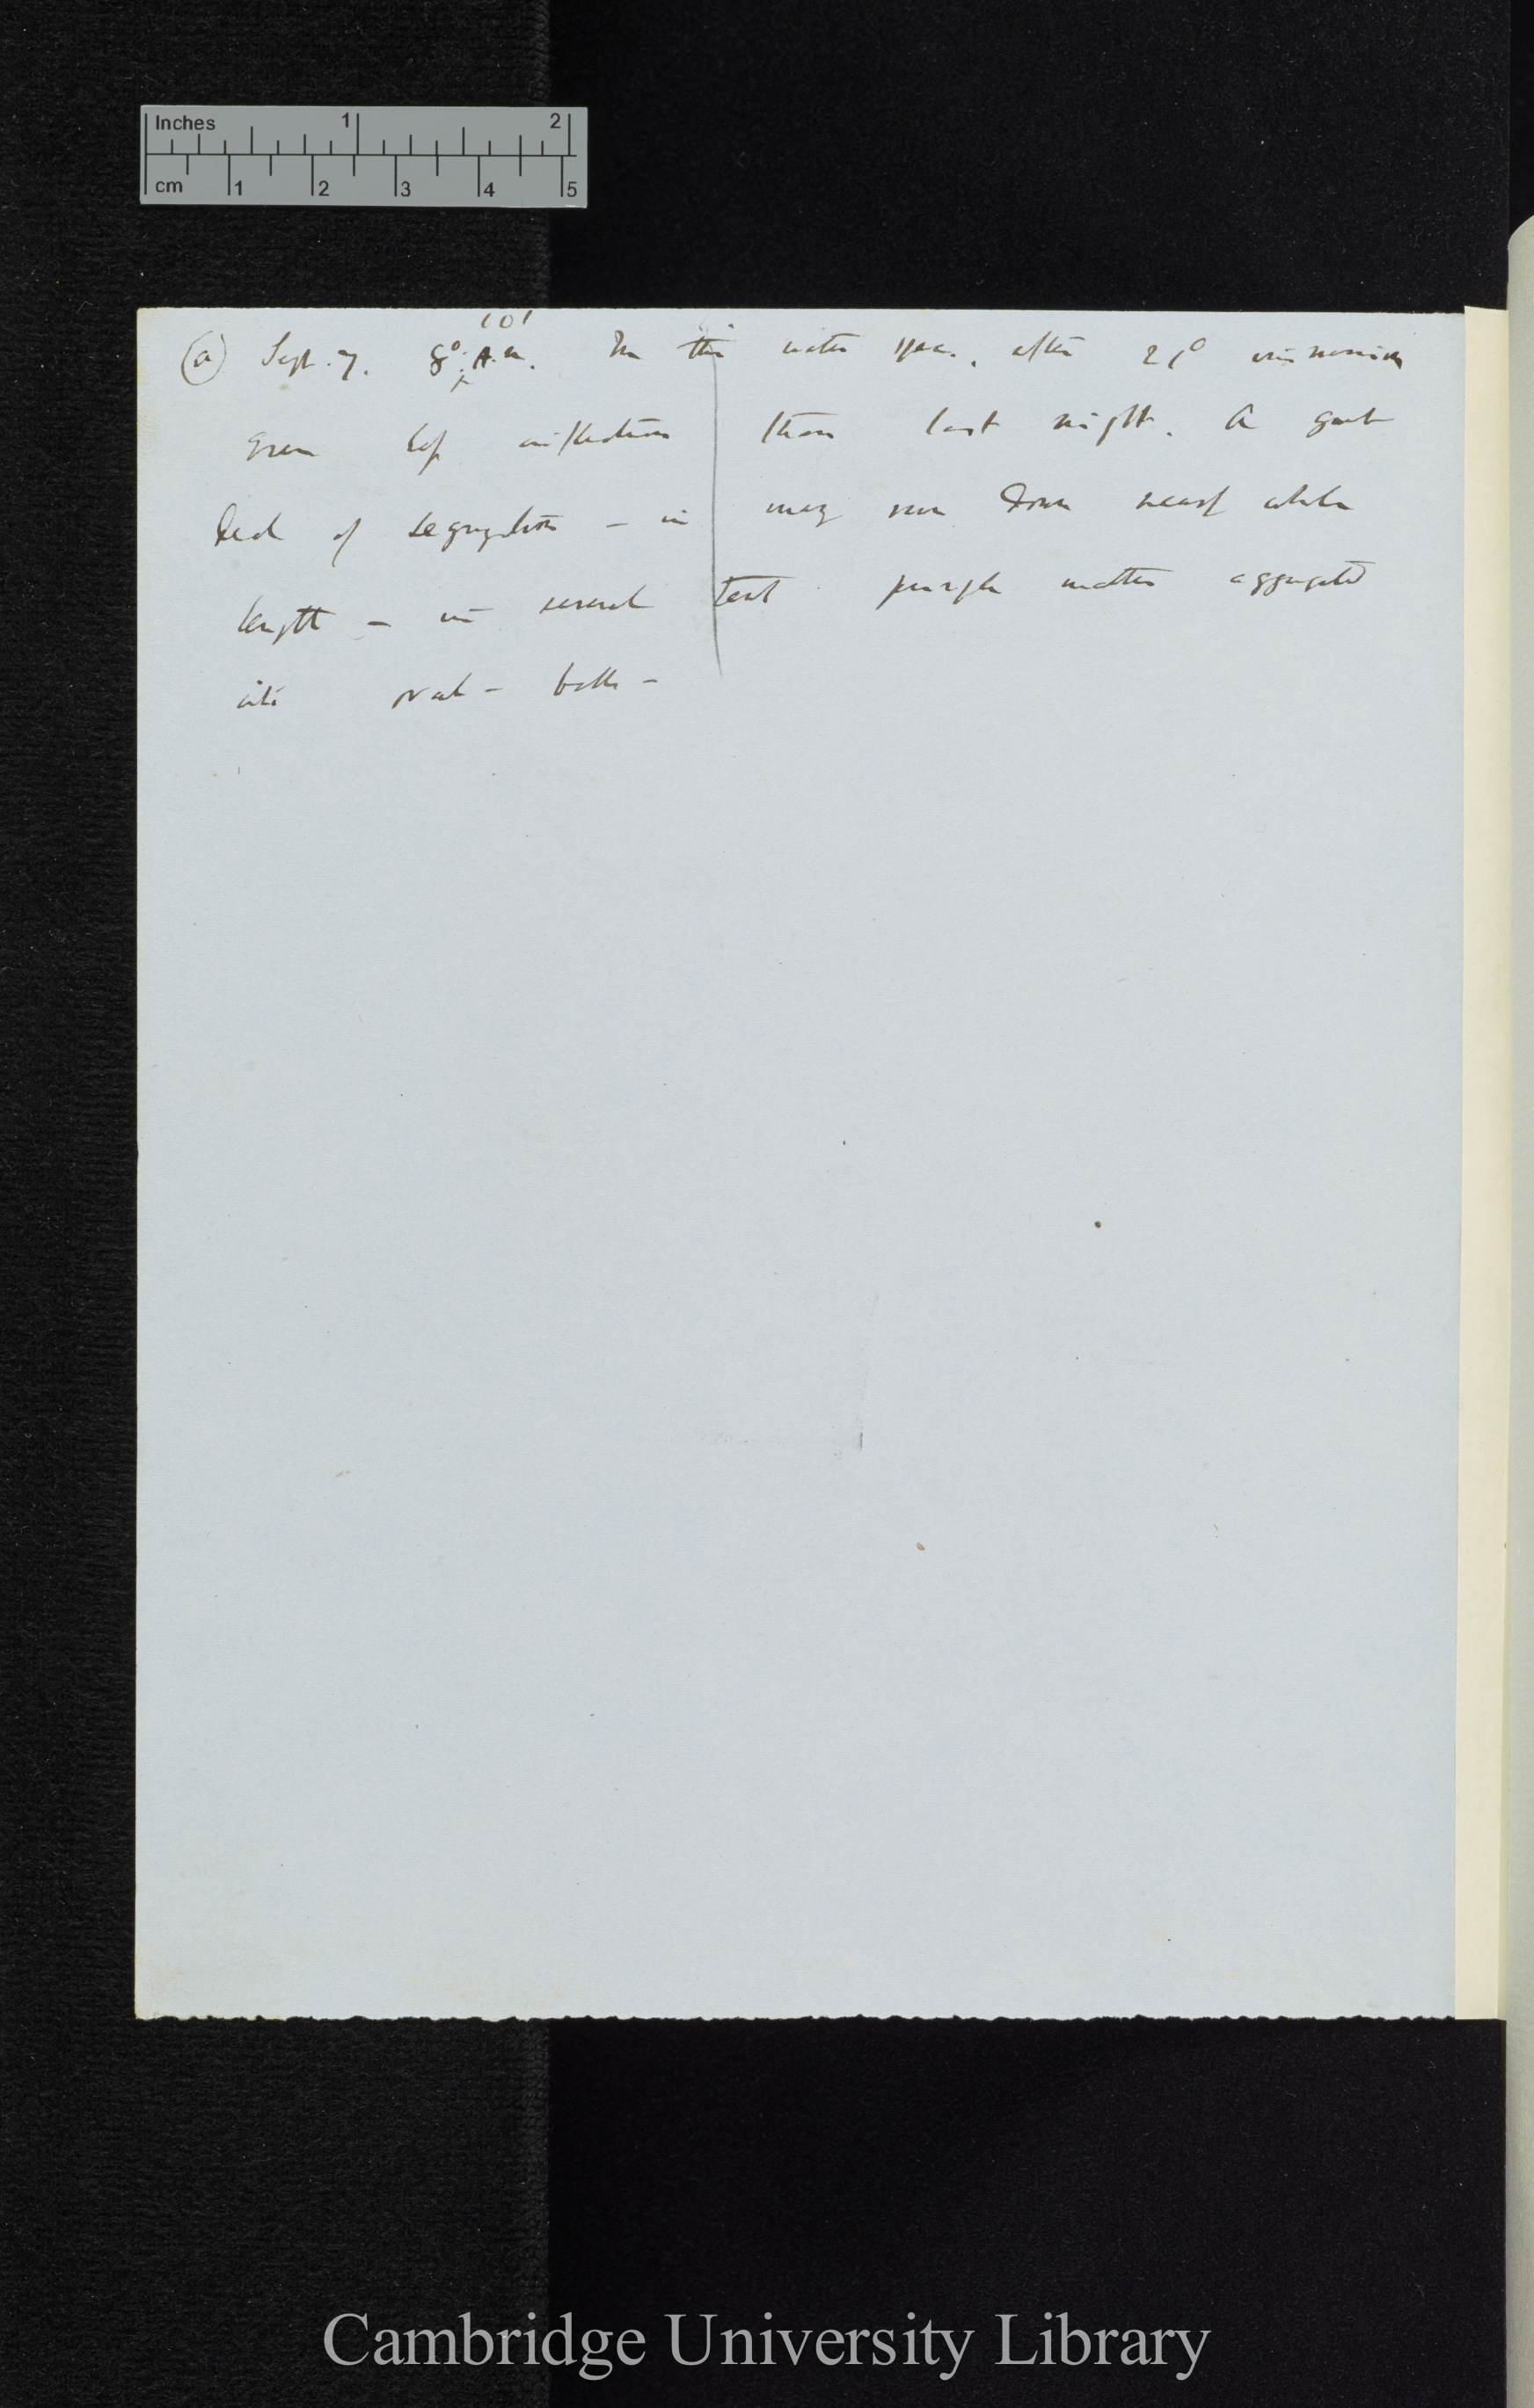 Inches 1 2
cm 1 2 3 4 5
(a) Sept. 7. 8° 10' A.m. In this water spec. after 21° immersion
less inflection than last night. A great
deal of segregation – in many run down nearly whole
length – in several tent purple matter aggregated
into oval – balls –
Cambridge University Library